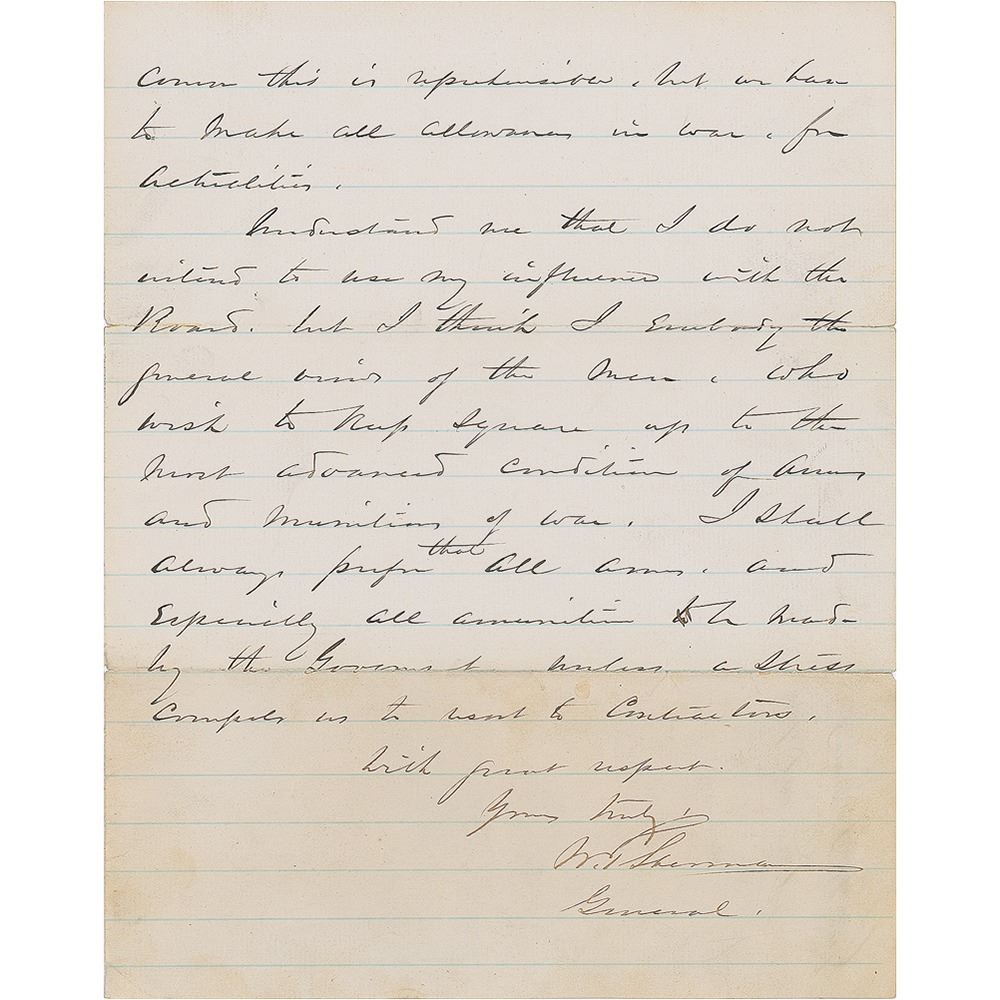 Course this is reprehensible, but we have
to make all allowances in war, for
actualities.
Understand me that I do not
intend to use my influence with the
Board. but I think I Embody the
general views of the men, who
wish to keep square up to the
most advanced condition of Arms
and munitions of war. I shall
always prefer that all arms, and
Especially all amunition to be made
by the Governmt unless a stress
compels us to resort to Contractors.
With great respect.
Yours truly,
W.T. Sherman
General.